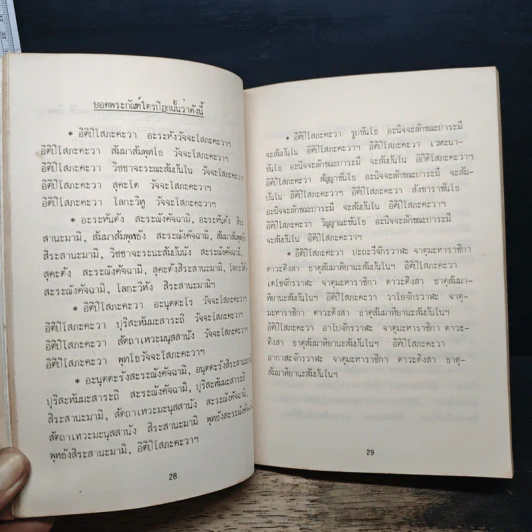 ยอดพระกัณฑ์ไตรปิฎกนั้นว่าดังนี้
* อิติปิโสภะคะวา อะระหังวัจจะโสภะคะวาฯ
อิติปิโสภะคะวา สัมมาสัมพุทโธ วัจจะโสภะคะวาฯ
อิติปิโสภะคะวา วิชชาจะระณะสัมปันโน วัจจะโสภะคะวาฯ
อิติปิโสภะคะวา สุคะโต วัจจะโสภะคะวาฯ
อิติปิโสภะคะวา โลกะวิทู วัจจะโสภะคะวาฯ
* อะระหันตัง สะระณังคัจฉามิ, อะระหันตัง สิระ-
สะนะมามิ, สัมมาสัมพุทธัง สะระณังคัจฉามิ, สัมมาสัมพุทธัง
สิระสะนะมามิ, วิชชาจะระณะสัมปันนัง สะระณังคัจฉามิ,
สุคะตัง สะระณังคัจฉามิ, สุคะตังสิระสะนะมามิ, โลกะวิทัง
สะระณังคัจฉามิ, โลกะวิทัง สิระสะนะมามิ
* อิติปิโสภะคะวา อะนุตตะโร วัจจะโสภะคะวาฯ
อิติปิโสภะคะวา ปุริสะทัมมะสาระถิ วัจจะโสภะคะวาฯ
อิติปิโสภะคะวา สัตถาเทวะมะนุสสานัง วัจจะโสภะคะวาฯ
อิติปิโสภะคะวา พุทโธวัจจะโสภะคะวาฯ
* อะนุตตะรังสะระณังคัจฉามิ, อะนุตตะรังสิระสะนะมามิ,
ปุริสะทัมมะสาระถิ สะระณังคัจฉามิ, ปุริสะทัมมะสาระถิ
สิระสะนะมามิ, สัตถาเทวะมะนุสสานัง สะระณังคัจฉามิ,
สัตถาเทวะมะนุสสานัง สิระสะนะมามิ, พุทธังสะระณังคัจฉามิ,
พุทธังสิระสะนะมามิ, อิติปิโสภะคะวาฯ
28
* อิติปิโสภะคะวา รูปขันโธ อะนิจจะลักขะณะปาระมี
จะสัมปันโน อิติปิโสภะคะวา อิติปิโสภะคะวา เวทะนา-
ขันโธ อะนิจจะลักขะณะปาระมี จะสัมปันโน อิติปิโสภะคะวา
อิติปิโสภะคะวา สัญญาขันโธ อะนิจจะลักขะณะปาระมี จะสัม-
ปันโน อิติปิโสภะคะวาฯ อิติปิโสภะคะวา สังขาระขันโธ
อะนิจจะลักขะณะปาระมี จะสัมปันโน อิติปิโสภะคะวาฯ
อิติปิโสภะคะวา วิญญาณะขันโธ อะนิจจะลักขะณะปาระมี
จะสัมปันโน อิติปิโสภะคะวาฯ
* อิติปิโสภะคะวา ปะถะวีจักรวาฬะ จาตุมะหาราชิกา
ตาวะติงสา ธาตุสัมมาทิยานะสัมปันโนฯ อิติปิโสภะคะวา
เตโชจักรวาฬะ จาตุมะหาราชิกา ตาวะติงสา ธาตุสัมมาทิ-
ยานะสัมปันโนฯ อิติปิโสภะคะวา วาโยจักรวาฬะ จาตุ-
มะหาราชิกา ตาวะติงสา ธาตุสัมมาทิยานะสัมปันโนฯ
อิติปิโสภะคะวา อาโปจักรวาฬะ จาตุมะหาราชิกา ตาวะ-
ติงสา ธาตุสัมมาทิยานะสัมปันโนฯ อิติปิโสภะคะวา
อากาสะจักรวาฬะ จาตุมะหาราชิกา ตาวะติงสา ธาตุ-
สัมมาทิยานะสัมปันโนฯ
29